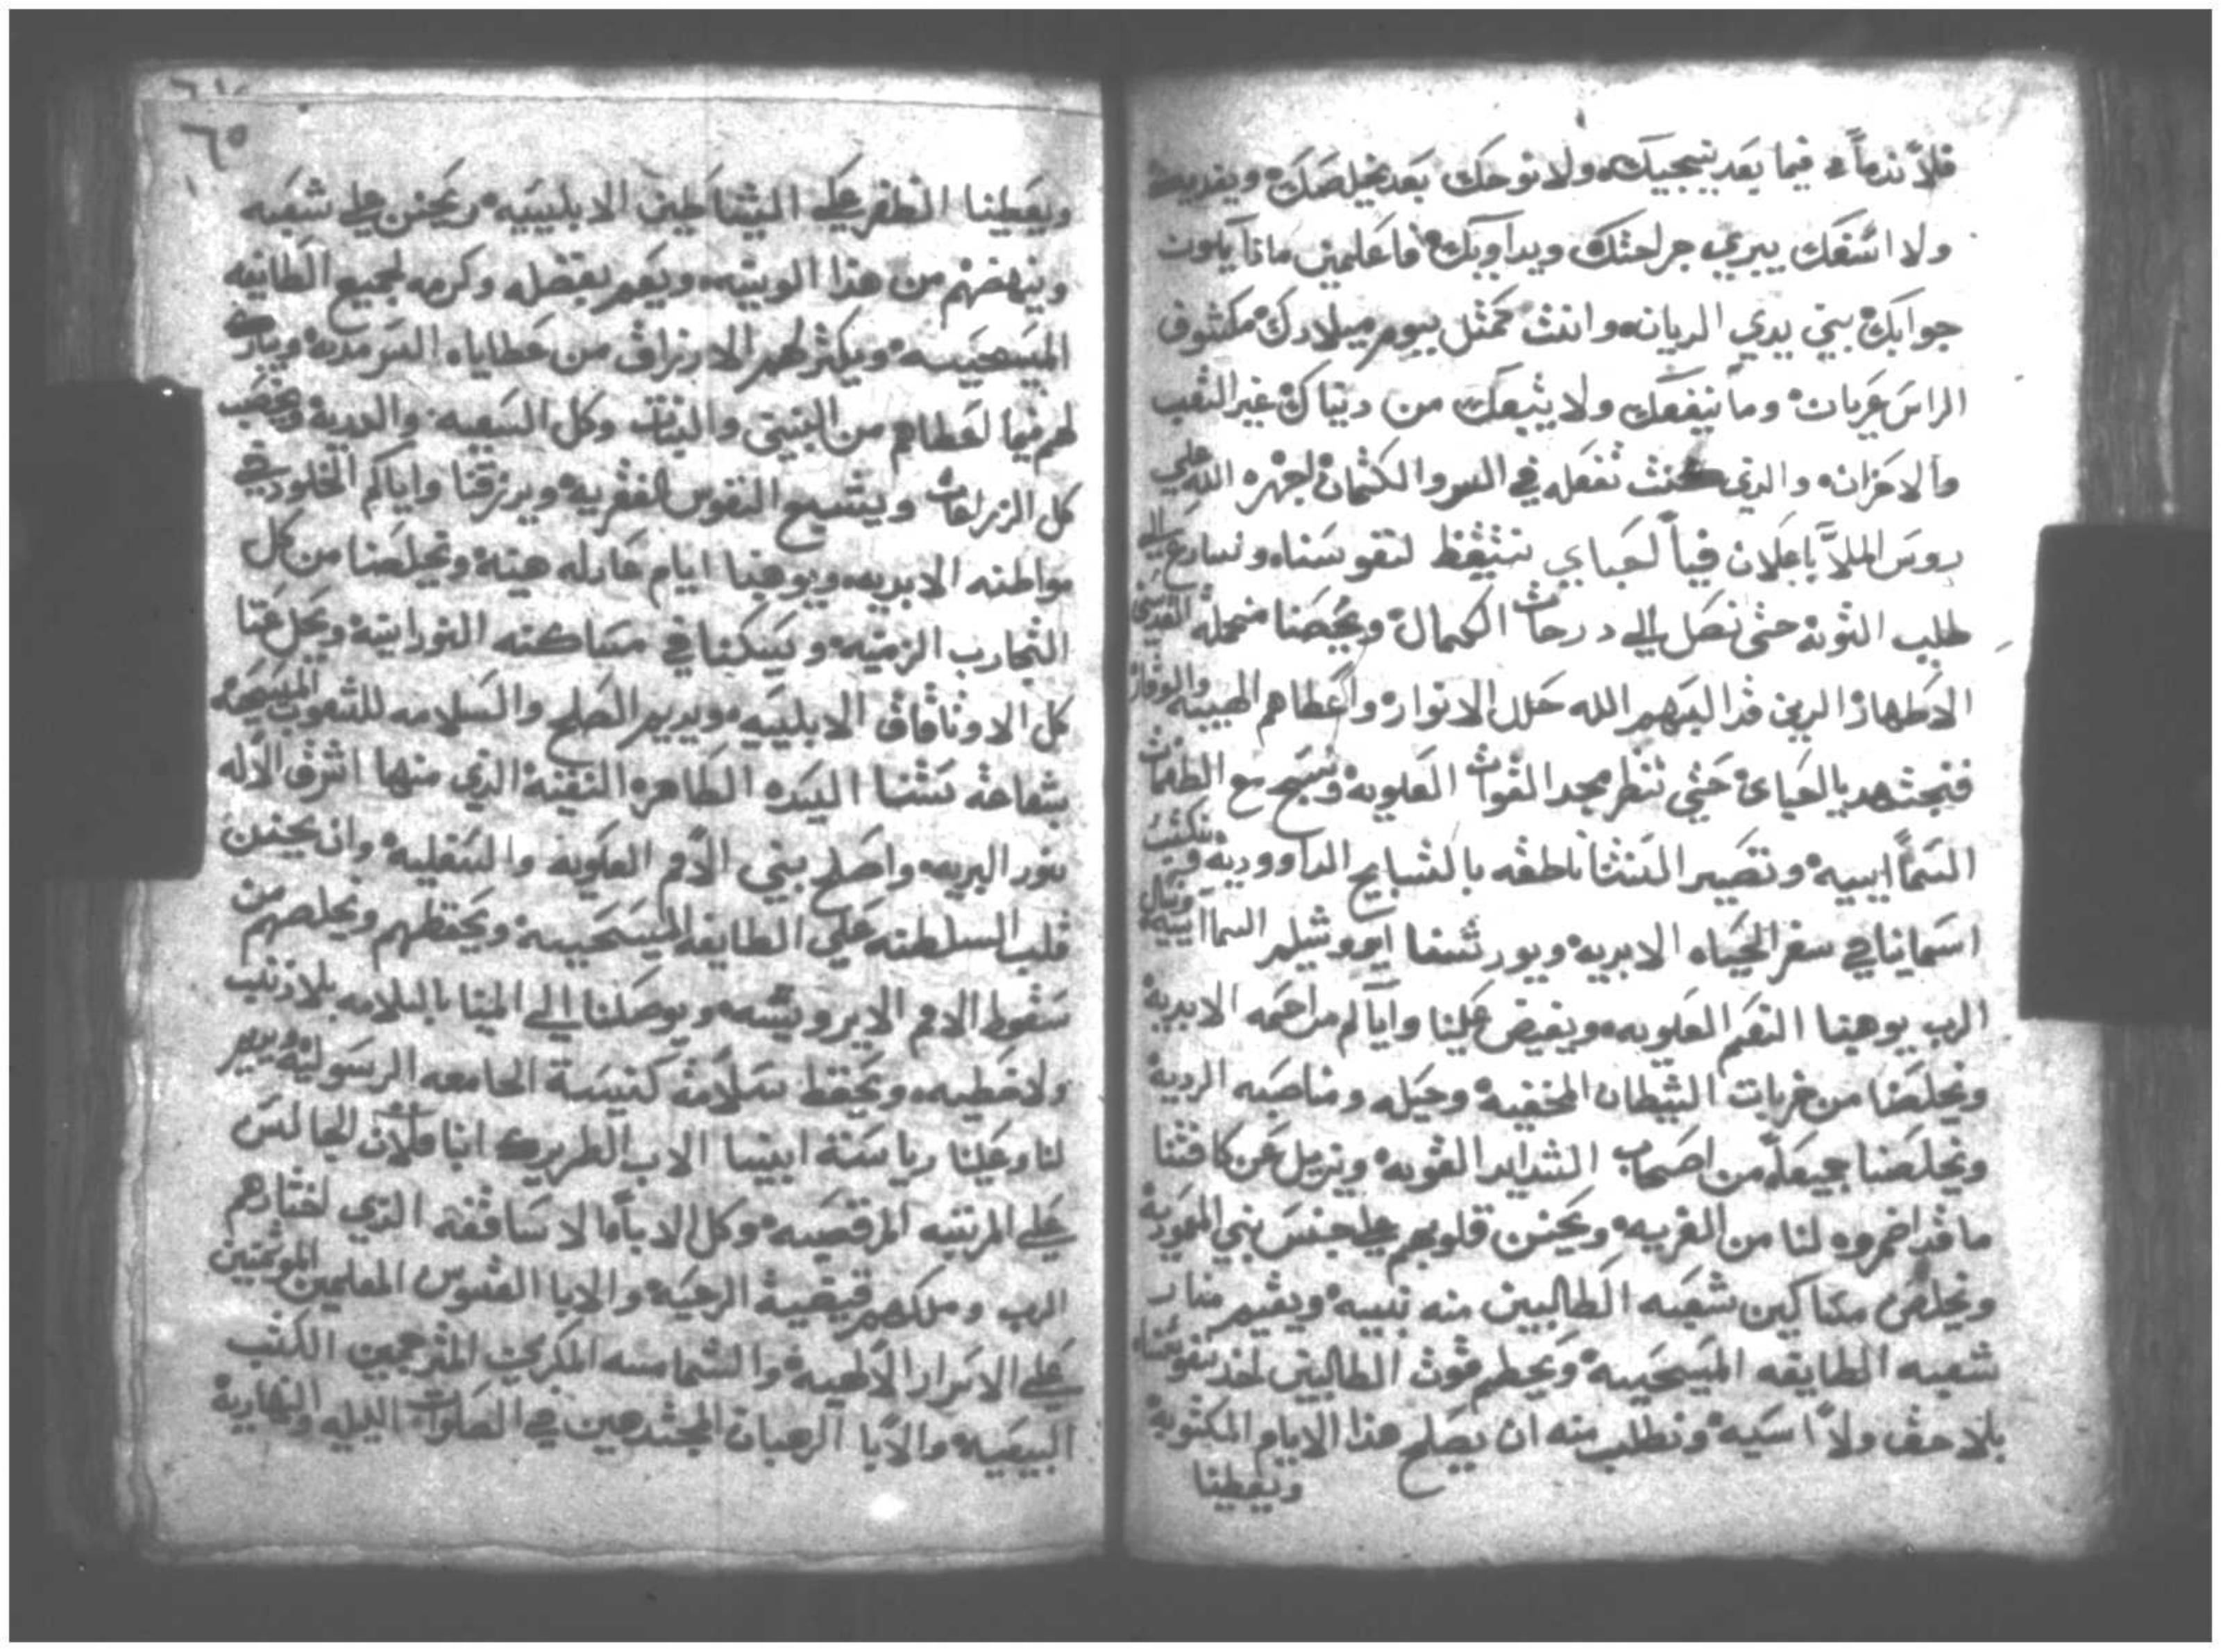 فلا ندماً فيما بعد ينجيك ولا نوحك بعد يخلصك ويفديك
ولا اسفك يبري جراحتك ويداويك فاعلمني ماذا يكون
جوابك بين يدي الديان وانت تمتل بيوم ميلادك مكشوف
الراس عريان وما ينفعك ولا يتبعك من دنياك غير التعب
والاحزان والذي كنت تفعله في السر والكتمان اجهره الله علي
روس الملا باعلان فيا احباي نتيقظ لنفوسنا ونسارع الي
طلب التوبه حتى نصل الي درجات الكمال ويحصنا منجملة القديسين
الاطهار الدين قد البسهم الله حلل الانوار واعطاهم الهيبه والوقار
فنجتهد يالحباي حتي ننظر مجد القوات العلويه ونسبح مع الطغمات
السمآييه وتصير السنتنا ناطقه بالتسابيح الداووديه وتنكتب
اسماينا في سفر الحياه الابديه ويورتنا ايروشليم السماآييه ونسال
الرب يوهبنا النعم العلويه ويفيض علينا واياكم مراحمه الابديه
ويخلصنا من ضربات الشيطان المخفيه وحيله ومناصبه الرديه
ويخلصنا جميعاً من اصحاب الشدايد القويه ويزيل عن كافتنا
ما قد اضمروه لنا من الفريه ويحنن قلوبهم علي جنس بني المعموديه
ويخلص مساكين شعبه الطالبين منه بنيه ويقيم منار
شعبه الطايفه المسيحيه ويحطم قوت الطالبين لاخد نفوسنا
بلا حق ولا اسيه ونطلب منه ان يصلح هذا الايام المكتوبه
ويعطينا
٦٥
ويعطينا الظفر علي الشياطين الابليسيه ويحنن علي شعبه
وينهضهم من هذا الوبيه ويعم بفضله وكرمه لجميع الطايفه
المسيحيه ويكتر لهم الارزاق من عطاياه السرمديه ويبارك
لهم فيما اعطاهم من البنين والبنات وكل السعيه والدريه ويخصب
كل الزراعات ويشبع النفوس الفقريه ويرزقنا واياكم الخلود في
مواطنه الابديه ويوهبنا ايام عادله هنيه ويخلصنا من كل
التجارب الزمنيه ويسكنا في مساكنه النورانيه ويحل عنا
كل الاوتاقاق الابليسيه ويديم الصلح والسلامه للشعوب المسيحيه
بشفاعة ستنا السيده الطاهره النقيه الذي منها اشرق الاله
بنور البريه واصلح بيني الامم العلويه والسفليه وان يحنن
قلب السلطنه علي الطايفه المسيحيه ويحفظهم ويخلصهم من
سقوط الامم الاير ويوصلنا الي المينا بالسلامه بلا زنب
ولا خطيه ويحفظ سلامة كنيسة الجامعه الرسوليه ويديم
لنا وعلينا رياسة ابينا الاب البطريرك انبا فلان الجالس
علي المرتبه المرقصيه وكل الاباا الاساقفه الذي اختارهم
الرب وملكهم قيضية الرعيه والابا القسوس المعلمين الموتمنين
علي الاسرار الالهيه والشمامسه المكرمين المترجمين الكتب
البيعيه والابا الرهبان المجتهدين في الصلوات الليليه والنهاريه